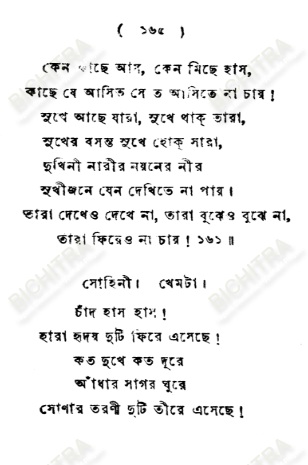 ( ১৬৫ )
কেন কাছে আস, কেন মিছে হাস,
কাছে যে আসিত সে ত আসিতে না চায় !
সুখে আছে যারা, সুখে থাক্ তারা,
সুখের বসন্ত সুখে হোক্ সারা,
দুখিনী নারীর নয়নের নীর
সুখীজনে যেন দেখিতে না পায় ।
তারা দেখেও দেখে না, তারা বুঝেও বুঝে না,
তারা ফিরেও না চায় ! ১৬১ ॥
সোহিনী । খেমটা ।
চাঁদ হাস হাস !
হারা হৃদয় দুটি ফিরে এসেছে !
কত দুখে কত দূরে
আঁধার সাগর ঘুরে
সোণার তরণী দুটি তীরে এসেছে !
BICHITRA
BICHITRA
BICHITRA
BICHITRA